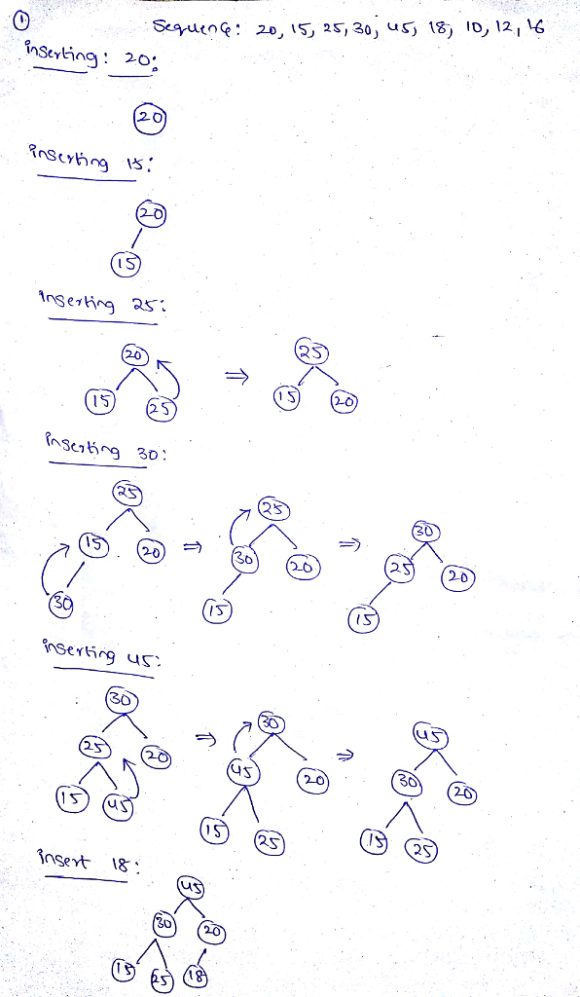 ① Sequence: 20, 15, 25, 30, 45, 18, 10, 12, 16
inserting: 20:
20
inserting 15:
20
15
inserting 25:
20 ⇒ 25
15 25 15 20
inserting 30:
25 ⇒ 25 ⇒ 30
15 20 30 20 25 20
30 15 15
inserting 45:
30 ⇒ 30 ⇒ 45
25 20 45 20 30 20
15 45 15 25 15 25
insert 18:
45
30 20
15 25 18